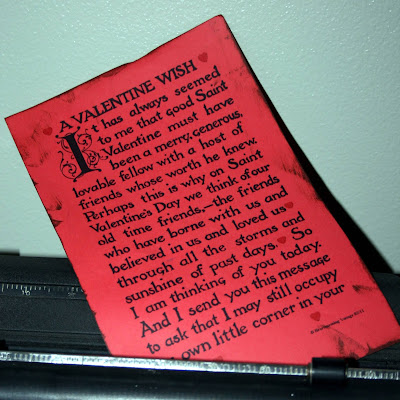 A VALENTINE WISH
It has always seemed
to me that good Saint
Valentine must have
been a merry, generous,
lovable fellow with a host of
friends whose worth he knew.
Perhaps this is why on Saint
Valentine's Day we think of our
old time friends,—the friends
who have borne with us and
believed in us and loved us
through all the storms and
sunshine of past days. So
I am thinking of you today.
And I send you this message
to ask that I may still occupy
own little corner in your